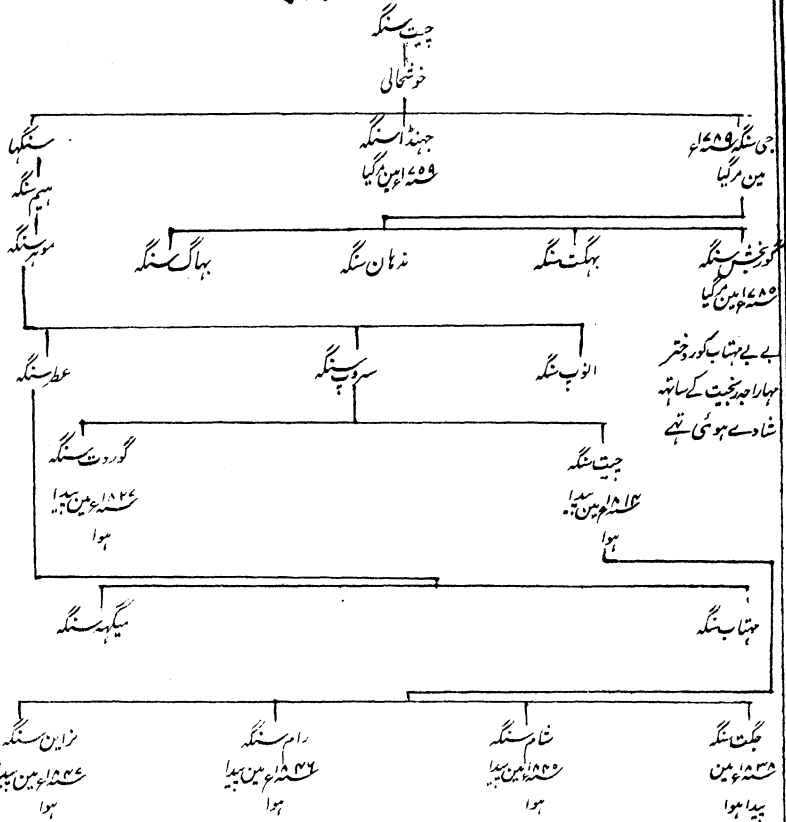 چیت سنگہ
خوشحالی
جی سنگہ ۱۷۸۹ء
مین مرگیا
جہنڈا سنگہ
۱۷۵۹ء مین مرگیا
سنگہا
ہیم سنگہ
موہر سنگہ
گوربخش سنگہ
۱۷۸۵ء مین مرگیا
بہگت سنگہ
ندہان سنگہ
بہاگ سنگہ
بے بے مہتاب کور دختر
مہاراجہ رنجیت کے ساتہہ
شادے ہوئی تہے
انوپ سنگہ
سروپ سنگہ
عطر سنگہ
چیت سنگہ
۱۸۱۴ء مین پیدا
ہوا
گوردت سنگہ
۱۸۲۷ء مین پیدا
ہوا
مہتاب سنگہ
میگہہ سنگہ
جگت سنگہ
۱۸۳۸ء مین
پیدا ہوا
شام سنگہ
۱۸۴۵ء مین پیدا
ہوا
رام سنگہ
۱۸۴۶ء مین پیدا
ہوا
نراین سنگہ
۱۸۴۷ء مین پیدا
ہوا